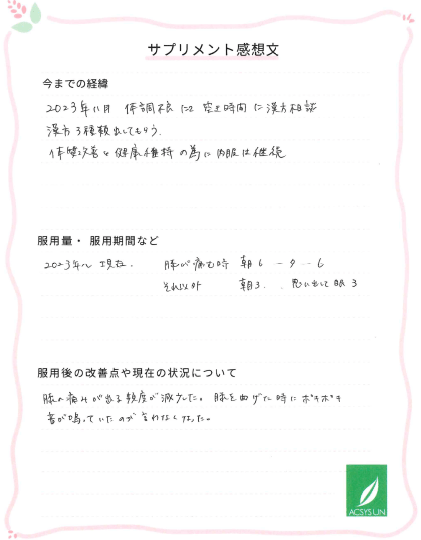 サプリメント感想文
今までの経緯
2023年11月 体調不良にて 空き時間に漢方相談
漢方3種類出してもらう。
体質改善と健康維持の為に内服は継続
服用量・ 服用期間など
2023年〜 現在. 膝が痛む時 朝6 ー 夕 ー 6
それ以外 朝3 . . 思い出して眠3
服用後の改善点や現在の状況について
膝の痛みが出る頻度が減少した。膝を曲げた時にポキポキ
音が鳴っていたのが 言わなくなった。
ACSYS UN